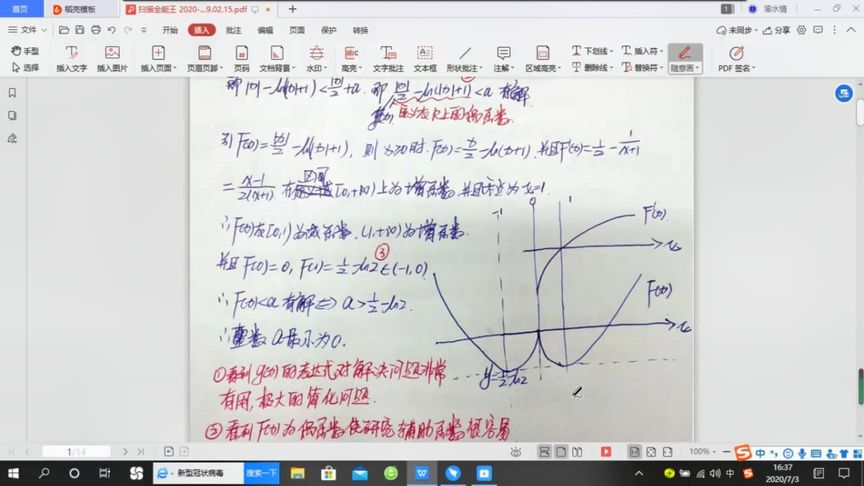 首页
稻壳模板
扫描全能王 2020-...9.02.15.pdf
1
渝水情
文件
开始
插入
批注
编辑
页面
保护
转换
未同步
分享
手型
选择
插入文字
插入图片
插入页面
页眉页脚
页码
文档背景
水印
高亮
文字批注
文本框
形状批注
注解
区域高亮
下划线
删除线
插入符
替换符
随意画
PDF 签名
即|x|-ln(|x|+1)<|x|/2+a. 即|x|/2-ln(|x|+1)<a 有解.
其为R上的偶函数.
则F(x)=|x|/2-ln(|x|+1), 则x>0时. F(x)=x/2-ln(x+1). 并且F'(x)=1/2-1/(x+1)
=(x-1)/2(x+1) 在区间[0,+∞)上为增函数, 并且零点为x=1.
∴F(x)在[0,1)为减函数. (1,+∞)为增函数.
并且F(0)=0, F(1)=1/2-ln2∈(-1,0) ③
∴F(x)<a 有解⇔a>1/2-ln2.
∴整数a最小为0.
①看到g(x)的表达式对解决问题非常
有用, 极大的简化问题.
②看到F(x)为偶函数使研究辅助函数很容易
-1
0
1
F'(x)
x
F(x)
x
y=1/2-ln2
1/14
100%
新型冠状病毒
搜索一下
中
中
16:37
2020/7/3